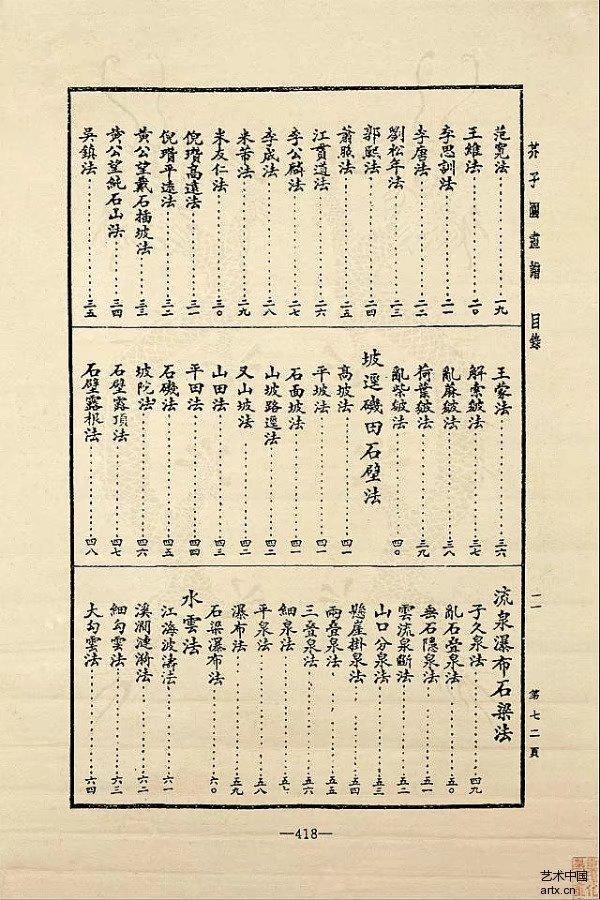 芥子園畫譜 目錄
二 第七二頁
范寬法 一九
王維法 二〇
李思訓法 二一
李唐法 二二
劉松年法 二三
郭熙法 二四
蕭照法 二五
江貫道法 二六
李公麟法 二七
李成法 二八
米芾法 二九
米友仁法 三〇
倪瓚高遠法 三一
倪瓚平遠法 三二
黃公望戴石插坡法 三三
黃公望純石山法 三四
吳鎮法 三五
王蒙法 三六
解索皴法 三七
亂麻皴法 三八
荷葉皴法 三九
亂柴皴法 四〇
坡逕磯田石壁法
高坡法 四一
平坡法 四一
石面坡法 四二
山坡路逕法 四二
又山坡法 四二
山田法 四三
平田法 四四
石磯法 四五
坡陀法 四六
石壁露頂法 四七
石壁露根法 四八
流泉瀑布石梁法
子久泉法 四九
亂石叠泉法 五〇
垂石隱泉法 五一
雲流泉斷法 五二
山口分泉法 五三
懸崖掛泉法 五四
兩叠泉法 五五
三叠泉法 五六
細泉法 五七
平泉法 五八
瀑布法 五九
石梁瀑布法 六〇
水雲法
江海波濤法 六一
溪澗漣漪法 六二
細勾雲法 六三
大勾雲法 六四
—418—
艺术中国
artx.cn